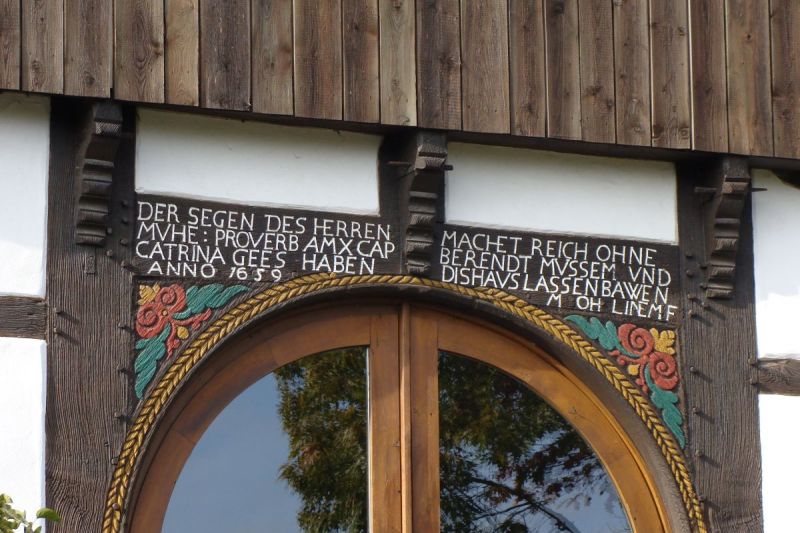 DER SEGEN DES HERREN
MVHE: PROVERB AMX CAP
CATRINA GEES HABEN
ANNO 1659
MACHET REICH OHNE
BERENDT MVSSEM VND
DISHAVS LASSEN BAWEN
M OH LINEMF